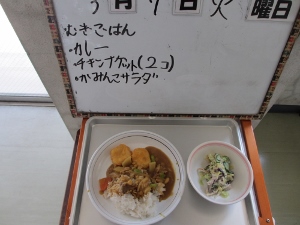 5月7日火曜日
むぎごはん
・カレー
・チキンナゲット(2コ)
・かみかみサラダ